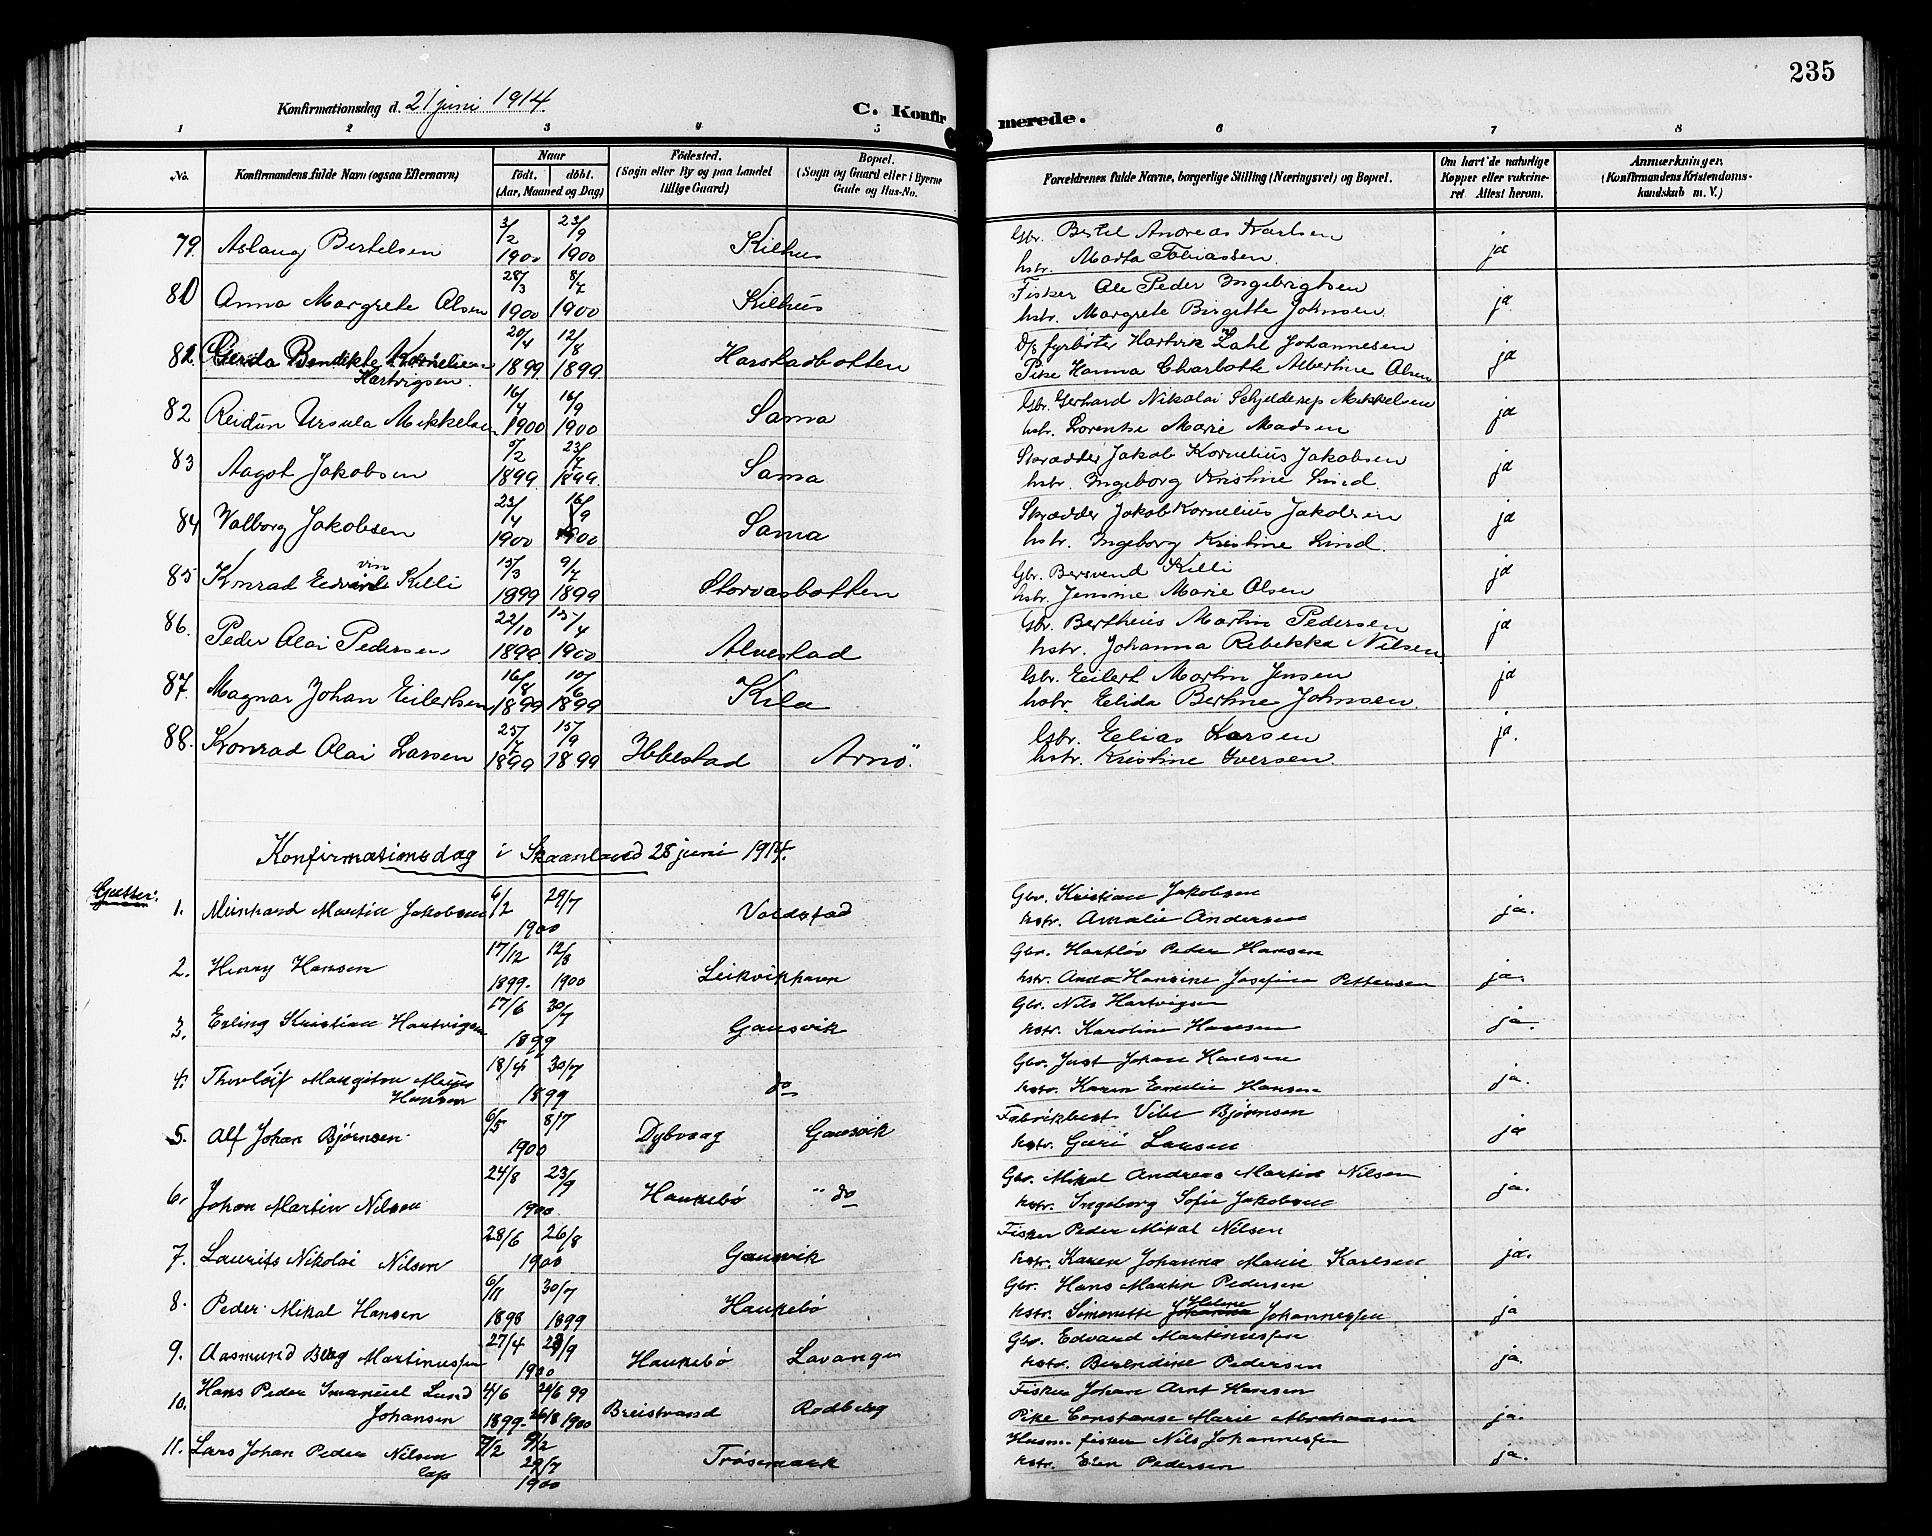 235
Konfirmationsdag d. 21 juni 1914.
C. Konfirmerede.
1 2 3 4 5 6 7 8
No. Konfirmandens fulde Navn (ogsaa Efternavn) Naar født. døbt. (Aar, Maaned og Dag) Fødested. (Sogn eller By og paa Landet tillige Gaard) Bopæl. (Sogn og Gaard eller i Byerne Gade og Hus-No. Forældrenes fulde Navne, borgerlige Stilling (Næringsvei) og Bopæl. Om havt de naturlige Kopper eller vakcineret Attest herom. Anmærkninger. (Konfirmandens Kristendomskundskab m. V.)
79. Aslaug Bertelsen 3/2 1900 23/9 1900 Kilhus Gbr. Bertel Andreas Karlsen ja
hstr. Marta Tobiassen.
80 Anna Margrete Olsen 28/3 1900 8/7 1900 Kilhus Fisker Ole Peder Ingebrigtsen ja
hstr. Margrete Birgitte Johnsen.
81. Gerda Bendikte Kornelie Hartvigsen. 20/4 1899. 12/8 1899. Harstadbotten D/s fyrbøter Hartvik Zahl Johannesen ja
Pike Hanna Charlotte Albertine Olsen
82 Reidun Ursula Mikkelsen 16/4 1900 16/9 1900 Sama Gbr. Gerhard Nikolai Schjelderup Mikkelsen ja
hstr. Lorentse Marie Madsen
83 Aagot Jakobsen 5/2 1899. 23/7 1899. Sama Skrædder Jakob Kornelius Jakobsen ja
hstr. Ingeborg Kristine Lind.
84 Valborg Jakobsen 23/4 1900 16/9 1900 Sama Skrædder Jakob Kornelius Jakobsen ja
hstr. Ingeborg Kristine Lind.
85 Konrad Edvin Killi 15/3 1899 9/7 1899 Storvasbotten Gbr. Bersvend Killi ja
hstr. Jensine Marie Olsen
86. Peder Olai Pedersen 22/10 1899 15/4 1900 Alvestad Gbr. Bertheus Martin Pedersen ja
hstr. Johanna Rebekka Nilsen.
87. Magnar Johan Eilertsen 16/8 1899 10/6 1899 Kila Gbr. Eilert Martin Jensen ja
hstr. Elida Bertine Johnsen.
88. Konrad Olai Larsen 25/7 1899 15/9 1899 Ibbestad Arnö. Gbr. Elias Larsen ja.
hstr. Kristine Iversen.
Konfirmationsdag i Skaanland 28 juni 1914.
Gutter:
1. Meinhard Martin Jakobsen 6/2 29/7 1900 Voldstad Gbr. Kristian Jakobsen ja.
hstr. Amalie Andersen
2. Henry Hansen 17/12 1899. 12/8 1900 Leikvikhavn Gbr. Hartløv Peder Hansen ja.
hstr. Anna Hansine Josefine Pettersen
3. Erling Kristian Hartvigsen 17/6 30/7 1899 Gausvik Gbr. Nils Hartvigsen ja.
hstr. Karoline Hansen
4. Thorleif Hansen 18/4 30/7 1899 do Gbr. Just Johan Hansen ja.
hstr. Karen Emelie Hansen
5. Alf Johan Bjørnsen. 6/5 8/7 1900 Dybvaag Gausvik Fabrikbest. Vibe Bjørnsen ja
hstr. Guri Larsen
6. Johan Martin Nilsen 24/8 23/9 1900. Haukebø " do Gbr. Mikal Andreas Martin Nilsen ja.
hstr. Ingeborg Sofie Jakobsen
7. Laurits Nikolai Nilsen 28/6 26/8 1900 Gausvik Fisker Peder Mikal Nilsen ja.
hstr. Karen Johanna Marie Karlsen
8. Peder Mikal Hansen 6/11 1898 30/7 1899 Haukebø Gbr. Hans Martin Pedersen ja
hstr. Simonette Helene Johannessen
9. Aasmund Berg Martinussen 27/4 23/9 1900 Haukebø Lavangen Gbr. Edvard Martinussen ja.
hstr. Berendine Pedersen
10. Hans Peder Imanuel Lund Johansen 4/6 1899. 24/6 99 26/8 1900 Breistrand Rodberg Fisker Johan Arnt Hansen ja.
Pike Constanse Marie Abrahamsen
11. Lars Johan Peder Nilsen lap 2/2 29/7 1900 Trøsemark Husm. fisker Nils Johannessen ja.
hstr. Elen Pedersen